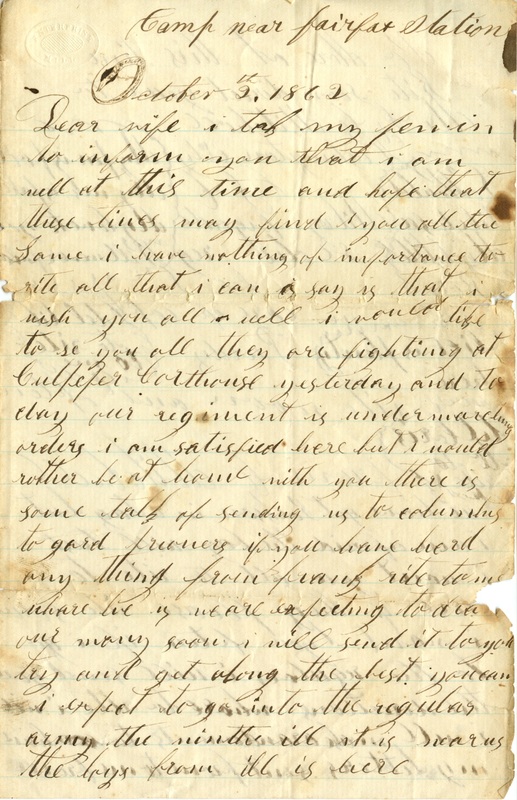 Camp near fairfax Station
October 2th. 1862
Dear wife i tak my pen in
to inform you that i am
well at this time and hope that
these lines may find you all the
Same i have nothing of importance to
rite all that i can say is that i
wish you all well i would like
to se you all they are fighting at
Culpefer Corthouse yesterday and to
day our regiment is under mareching
orders i am satisfied here but i would
rother be at home with you there is
some talk of sending us to columbus
to gard prisoners if you have herd
any thing from frank rite to me
whare he is we are expecting to dra
our mony soon i will send it to you
try and get along the best you can
i expect to go into the regular
army the ninths ill it is near us
the boys from ill is here